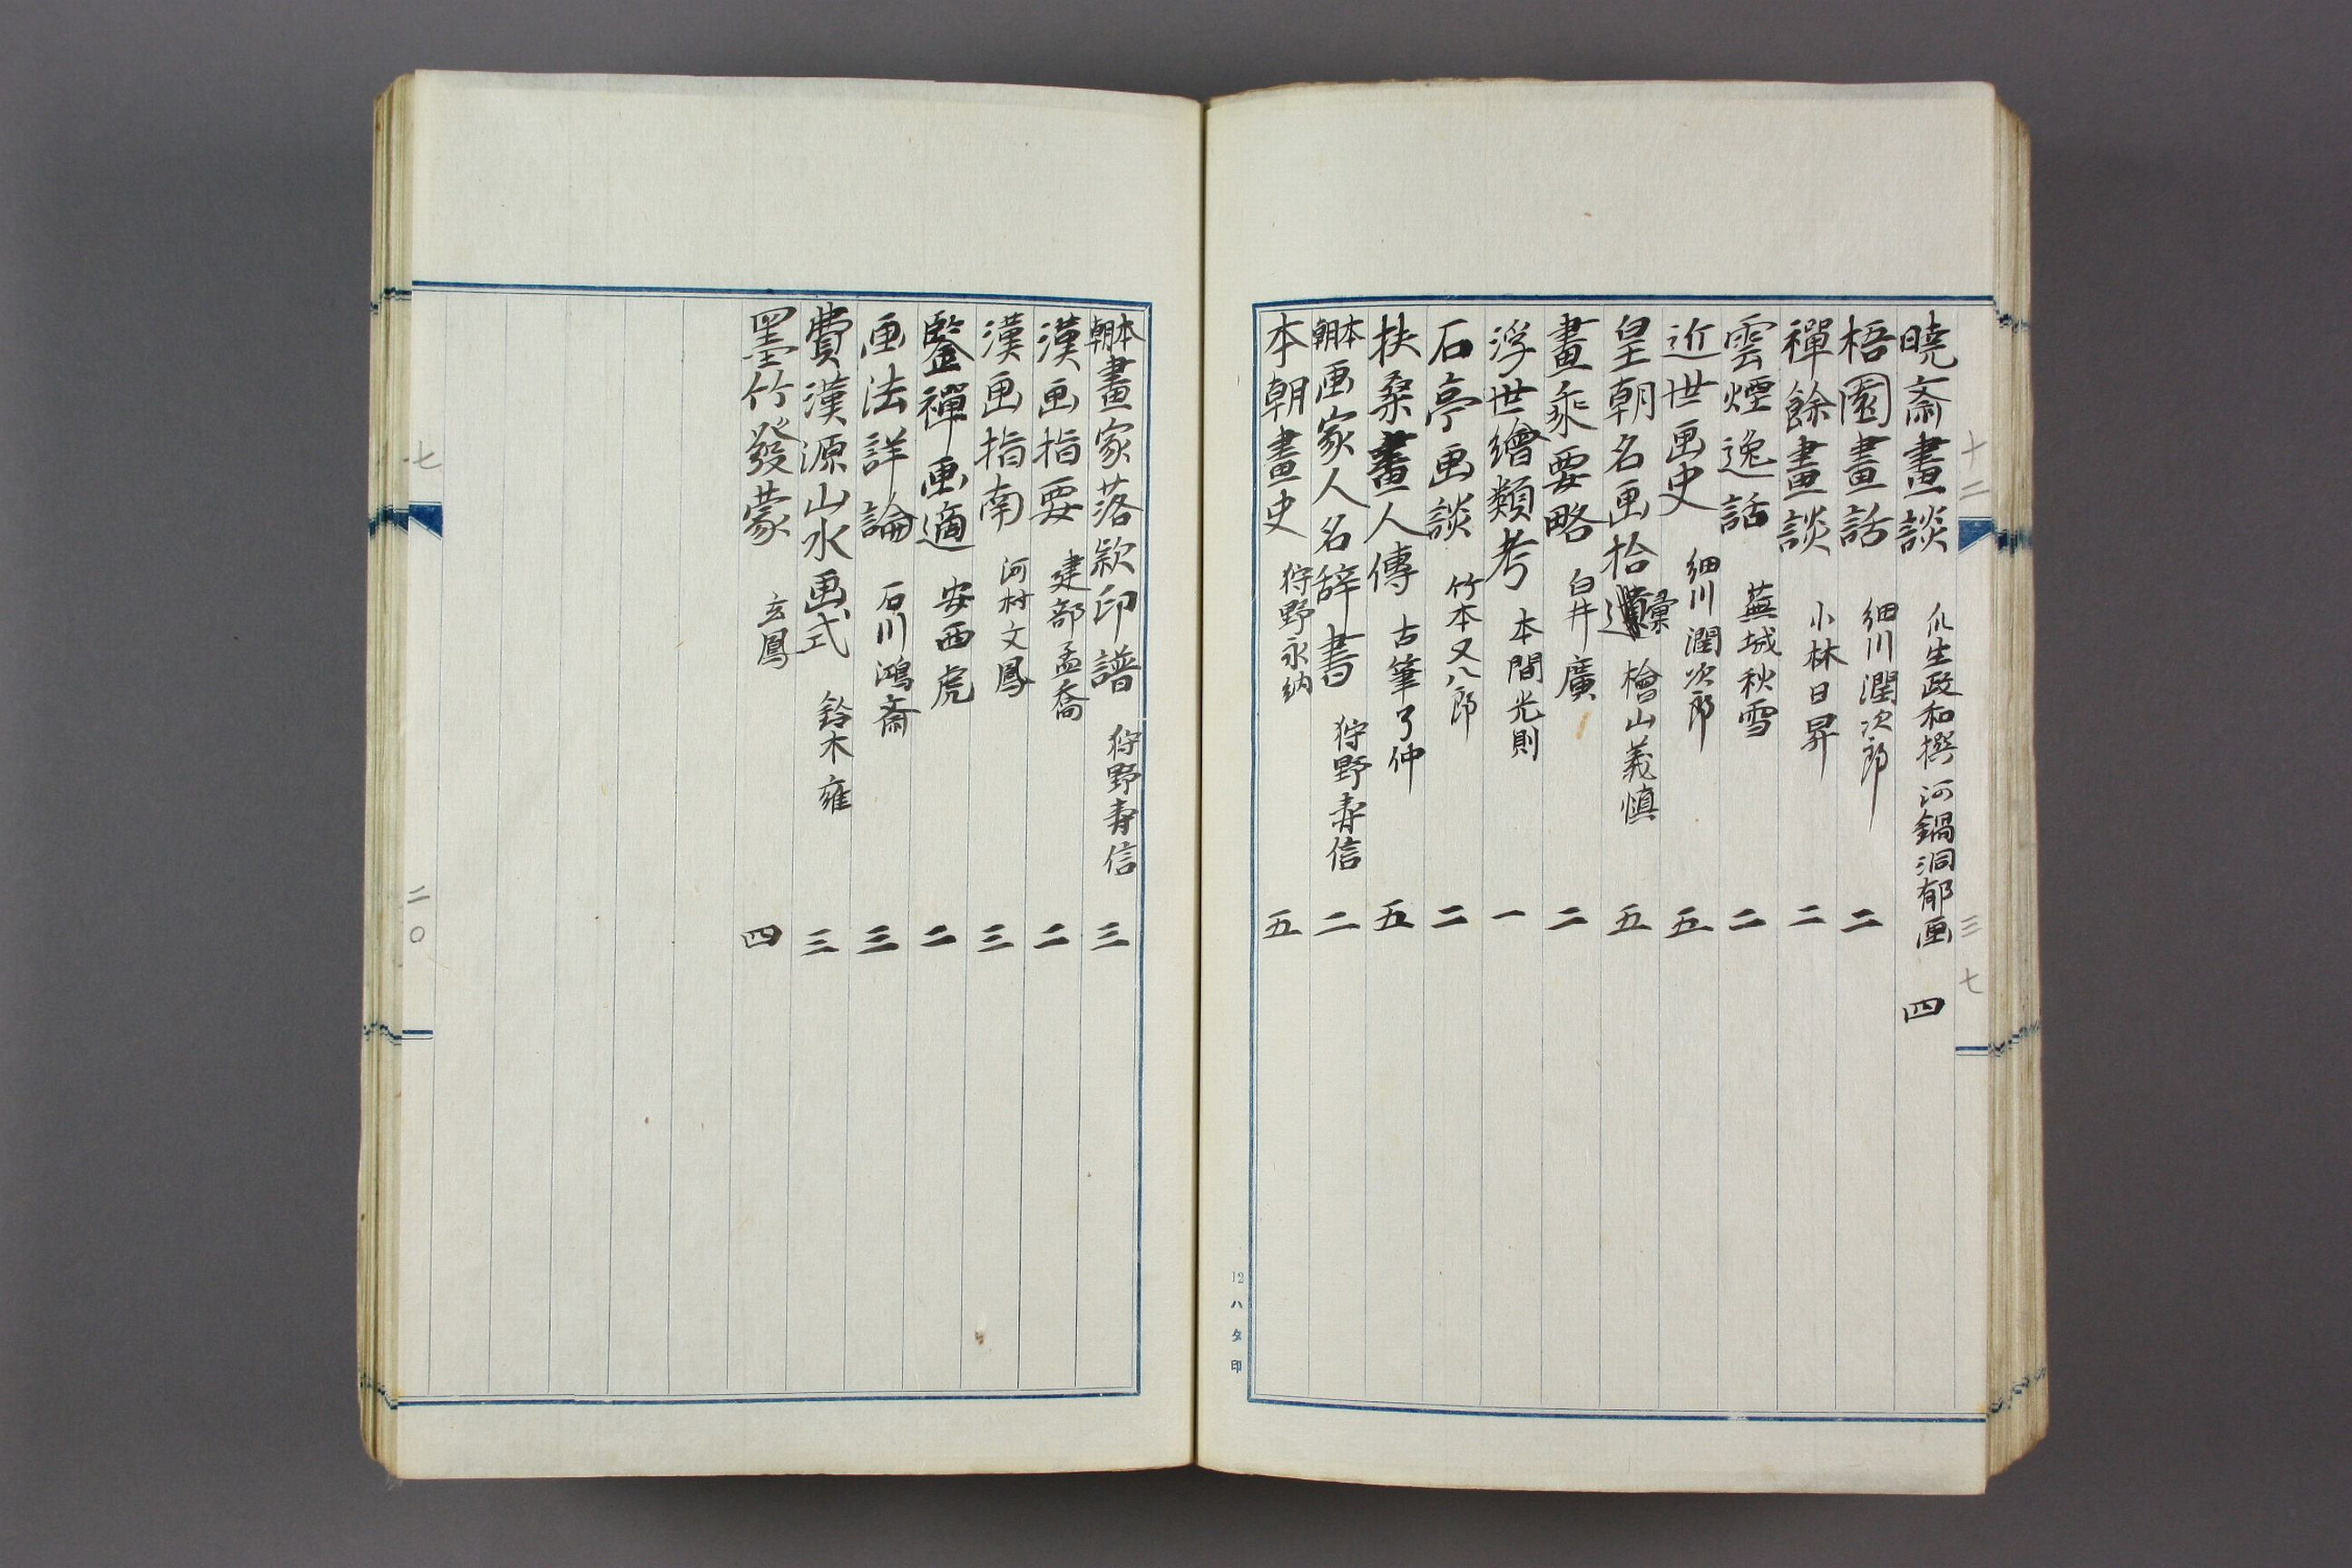 十二
三七
暁斎畫談 爪生政和撰 河鍋洞郁画 四
梧園畫話 細川潤次郎 二
禪餘畫談 小林日昇 二
雲煙逸話 蕪城秋雪 二
近世画史 細川潤次郎 五
皇朝名画拾彙 檜山義慎 五
畫乘要略 白井廣 二
浮世繪類考 本間光則 一
石亭画談 竹本又八郎 二
扶桑畫人傳 古筆了仲 五
本朝画家人名辞書 狩野寿信 二
本朝畫史 狩野永納 五
12ハタ印
本朝畫家落款印譜 狩野寿信 三
漢画指要 建部孟喬 二
漢画指南 河村文鳳 三
鑒禪画適 安西虎 二
画法詳論 石川鴻斎 三
費漢源山水画式 鈴木雍 三
墨竹發蒙 玄鳳 四
七
二〇